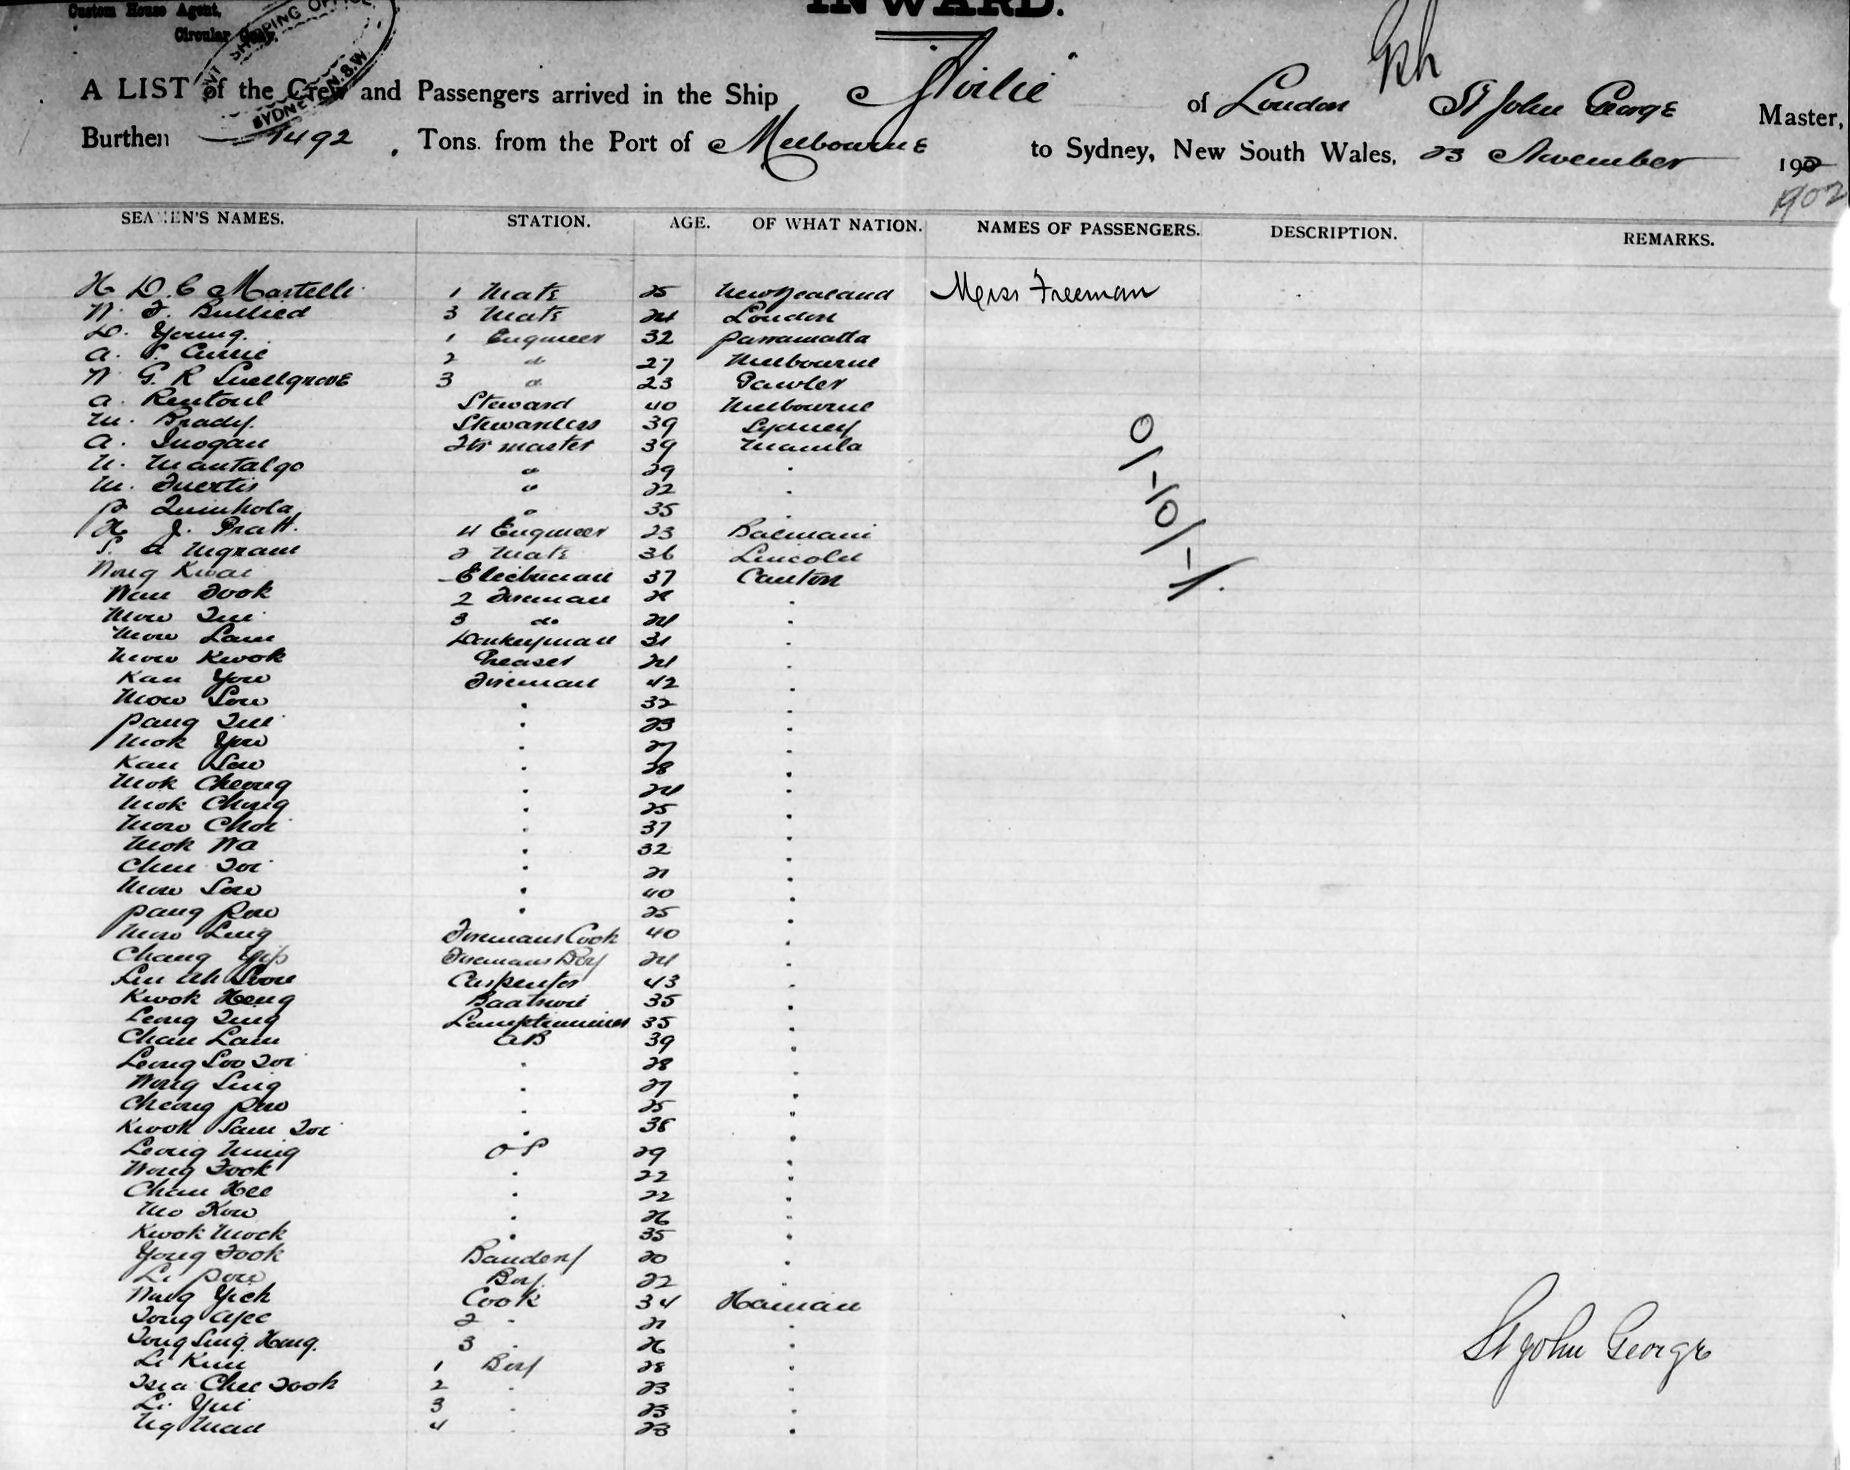 INWARD.
Custom House Agent,
Circular Quay.
SHIPPING OFFICE
SYDNEY N.S.W
A LIST of the Crew and Passengers arrived in the Ship Airlie of London St John George Master,
Burthen 1492 Tons from the Port of Melbourne to Sydney, New South Wales, 23 November 190
1902
SEAMEN'S NAMES. STATION. AGE. OF WHAT NATION. NAMES OF PASSENGERS. DESCRIPTION. REMARKS.
H D. C Martelli 1 Mate 25 New Zealand Miss Freeman
W. F. Bullied 3 Mate 24 London
D. Young. 1 Engineer 32 Parramatta
A. P. Currie 2 do 27 Melbourne
W G. R Snellgrove 3 do 23 Gawler
A. Rentoul Steward 40 Melbourne
M. Brady. Stewardess 39 Sydney
A. Qr master 39 Manila
N. Mantalgo " 29 "
M. " 22 "
P " 35 "
H J. Pratt. 4 Engineer 23 Balmain
S. A Ingram 2 Mate 36 Lincoln
Wong Kwai 37 Canton
Fook 2 Fireman "
Mow 3 do. 24 "
Mow Lam Donkeyman 31 "
Mow Kwok Greaser 24 "
Kan Yow Fireman 42 "
Mow Sow " 32 "
Pang " 23 "
Mok Yow " 27 "
Kan Sow " 28 "
Mok Cheong " 24 "
Mok Chung " 25 "
Mow Choi " 37 "
Mok Wa " 32 "
Chun Toi " 21 "
Mow Sow " 40 "
Pang Pow " 25 "
Mow Ling Firemans Cook 40 "
Chang Yip Firemans Boy 24 "
Carpenter 43 "
Kwok Heng Boatswain 35 "
Leong Lamptrimmer 35 "
Chan Lam AB 39 "
Leong Soo Toi " 28 "
Wong Sing " 27 "
Cheong Pow " 25 "
Kwok Sam Toi " 38 "
Leong Ming OS 29 "
Wong Fook " 22 "
Chan Hee " 22 "
Mo Kow " 26 "
Kwok Mock " 35 "
Yong Fook 20 "
Li Pow Boy. 22 "
Wong Yick Cook 34 Hainan
Tong 2 " 21 "
Tong Sing Hong. 3 " 26 "
Li Kun 1 Boy 28 "
Chee Fook 2 " 23 "
Li Yui 3 " 23 "
Ng Mau 4 " 23 "
0/-10/-1/.
St John George